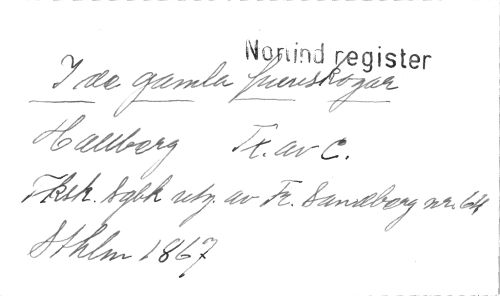 Norlind register
I de gamla furuskogar
Hallberg Tx. av C.
Fksk. Sgbk utg. av Fr. Sandberg nr. 64
Sthlm 1867